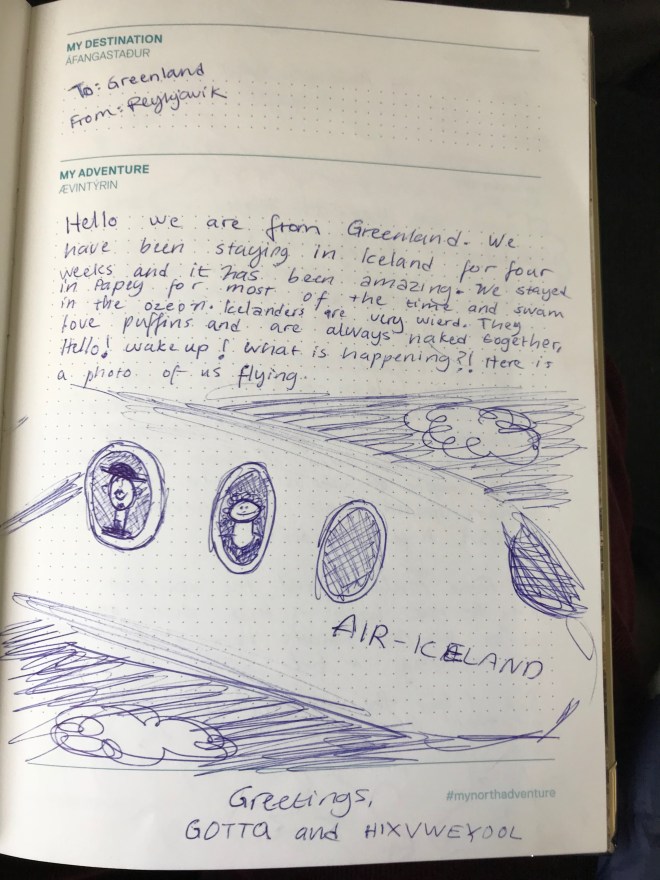 MY DESTINATION
ÁFANGASTAÐUR
To: Greenland
From: Reykjavik
MY ADVENTURE
ÆVINTÝRIN
Hello we are from Greenland. We
have been staying in Iceland for four
weeks and it has been amazing. We stayed
in Papey for most of the time and swam
in the ozeon. Icelanders are very wierd. They
love puffins and are always naked together,
Hello! wake up! What is happening?! Here is
a photo of us flying.
AIR-ICELAND
#mynorthadventure
Greetings,
GOTTA and HIXVWEXOOL